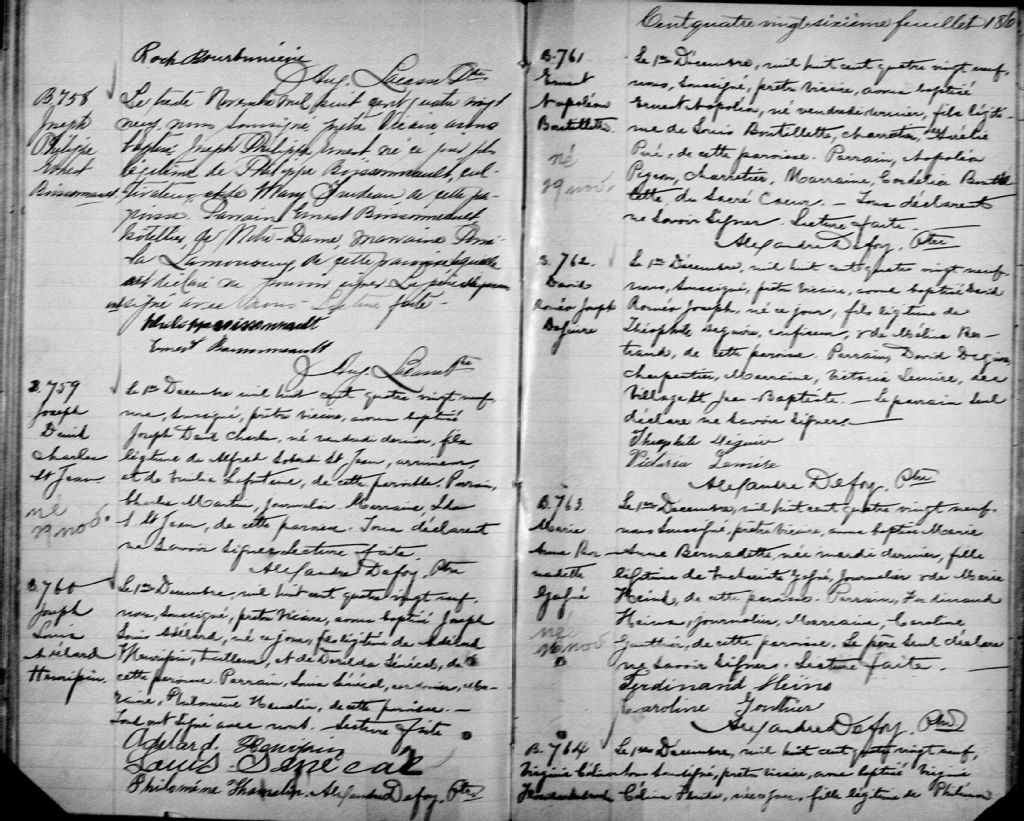 Roch Bourbonnière
Aug. Lacasse Ptre
B.758
Joseph
Philippe
Ernest
Boissonneault
Le trente Novembre mil huit cent quatre vingt
neuf nous soussigné, prêtre Vicaire avons
baptisé Joseph Philippe Ernest né ce jour fils
légitime de Philippe Boissonneault, cul-
tivateur, et de Mary de cette pa-
roisse. Parrain Ernest Boissonneault
hôtellier, de Notre-Dame, marraine
Lamoureux de cette paroisse laquelle
a déclaré ne pouvoir signer Le père
signé avec nous. Lecture faite.
Philippe Boissonneault
Ernest Boissonneault
Aug. Lacasse Ptre
B.759
Joseph
David
Charles
St Jean
né
29 nov.
Le 1er Décembre mil huit cent quatre vingt neuf,
nous, Sousigné, prêtre vicaire, avons baptisé
Joseph David Charles, né vendredi dernier, fils
légitime de Alfred St Jean, arrimeur,
et de Emilie Lafontaine, de cette paroisse. Parrain,
Charles Martin, Journalier. Marraine,
St Jean, de cette paroisse. Tous déclarent
ne savoir signer. Lecture faite.
Alexandre Defoy. Ptre
B.760
Joseph
Louis
Adélard
Henripin
Le 1er Décembre, mil huit cent quatre vingt neuf,
nous, Sousigné, prêtre Vicaire, avons baptisé Joseph
Louis Adélard, né ce jour, fils légitime de Adélard
Henripin, tailleur, et de Dorilda Sénécal, de
cette paroisse. Parrain, Louis Sénécal, cordonnier, Mar-
raine, Philomène Hamelin, de cette paroisse. —
Tous ont signé avec nous. Lecture faite
Adelard Henripin
Louis Senecal
Philomène Hamelin. Alexandre Defoy. Ptre
Cent quatre vingt sixième feuillet 18
B.761
Ernest
Napoléon
Boutillette
né
29 nov.
Le 1er Décembre, mil huit cent quatre vingt neuf,
nous, Sousigné, prêtre vicaire, avons baptisé
Ernest Napoléon, né vendredi dernier, fils légiti-
me de Louis Boutillette, charretier, & Amélie
Paré, de cette paroisse. Parrain, Napoléon
Pigeon, charretier. Marraine, Cordélia Boutil-
lette, du Sacré Cœur. — Tous déclarent
ne Savoir Signer. Lecture faite.
Alexandre Defoy. Ptre
B.762
David
Roméo Joseph
Deguire
Le 1er Décembre, mil huit cent quatre vingt neuf,
nous, Sousigné, prêtre vicaire, avons baptisé David
Roméo Joseph, né ce jour, fils légitime de
Théophile Deguire, confiseur, & de Mélina Ber-
trand, de cette paroisse. Parrain, David Deguire
Charpentier, Marraine, Victoria Lemire, de
Village St Jean-Baptiste. — Le parrain Seul
déclare ne Savoir Signer. —
Theophile Deguire
Victoria Lemire
Alexandre Defoy. Ptre
B.763
Marie
Anne Ber-
nadette
née
nov.
Le 1er Décembre, mil huit cent quatre vingt neuf,
nous Sousigné, prêtre Vicaire, avons baptisé Marie
Anne Bernadette, née mardi dernier, fille
légitime de Journalier & de Marie
de cette paroisse. Parrain, Ferdinand
Heins, journalier, Marraine, Caroline
Gauthier, de cette paroisse. Le père Seul déclare
ne Savoir Signer. Lecture faite. —
Ferdinand Heins
Caroline Gouthier
Alexandre Defoy. Ptre
B.764
Virginie
Le 1er Décembre, mil huit cent quatre vingt neuf,
nous Sousigné, prêtre vicaire, avons baptisé Virginie
née ce jour, fille légitime de